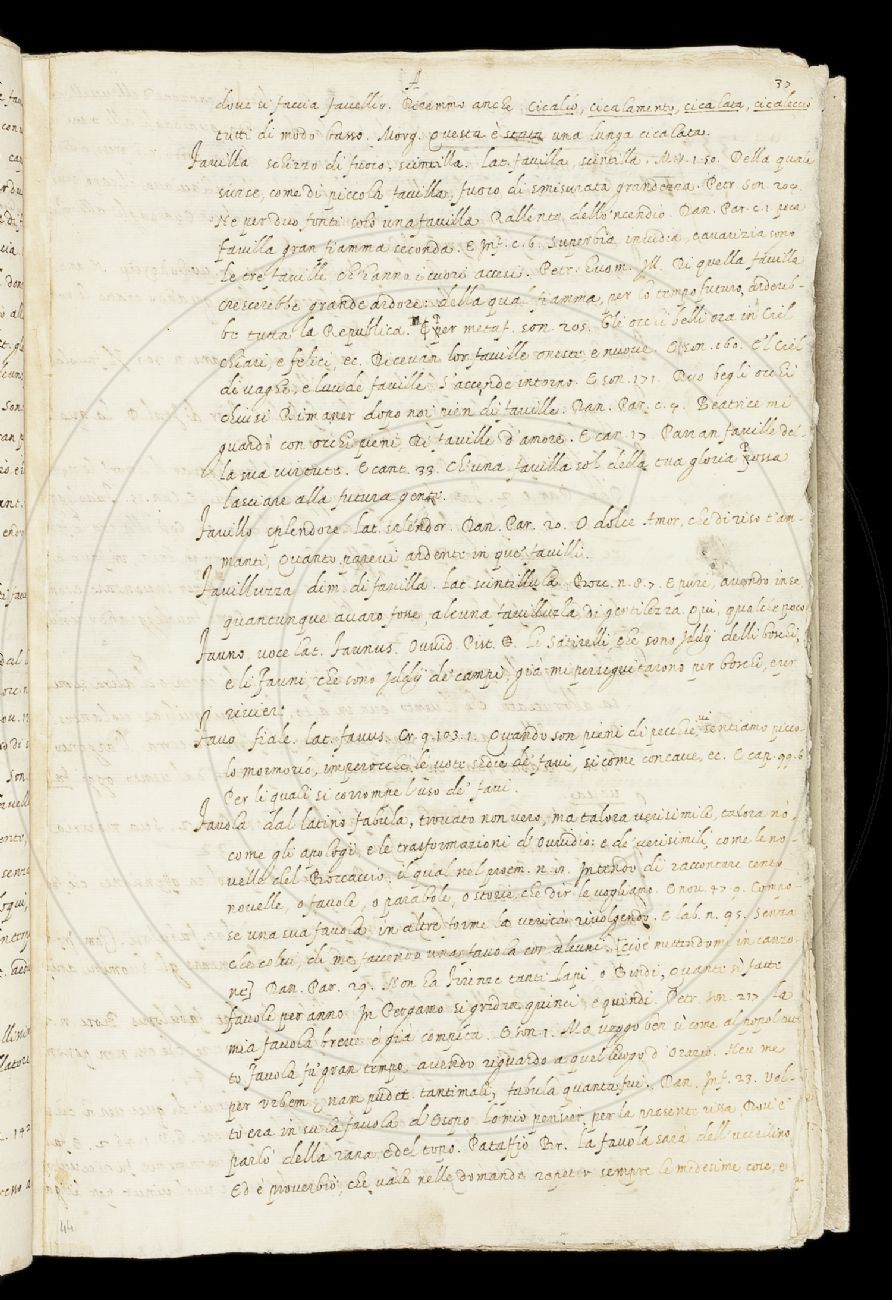 37
dove si faccia favellio. Diremmo anche cicalio, cicalamento, cicalata, cicaleccio
tutti di modo basso. Morg. Questa è stata una lunga cicalata.
Favilla schizzo di fuoco, scintilla. lat. favilla, scintilla. M.V. 1. 50. Della quale
surse, come di piccola favilla, fuoco di smisurata grandezza. Petr. Son. 204.
Nè per duo fonti solo una favilla Rallenta dello 'ncendio. Dan. Par. c. 1. poca
favilla gran fiamma seconda. E Inf. c. 6. Superbia, invidia, ed avarizia sono
Le tre faville c'hanno i cuori accesi. Petr. huom. ill. Di quella favilla
crescerebbe grande ardore: della qua fiamma, per lo tempo futuro, ardereb-
be tutta la Republica. Per metaf. son. 205. Gli occhi belli ora in Ciel
chiari, e felici, ec. Dicevan lor faville oneste, e nuove. E son. 160. E 'l Ciel
di vaghe, e lucide faville S'accende intorno. E son. 171. Duo begli occhi
chiusi Rimaner dopo noi pien di faville. Dan. Par. c. 4. Beatrice mi
guardò con occhi pieni Di faville d'amore. E can. 17 Parran faville del-
la sua virtute. E cant. 33. Ch'una favilla sol della tua gloria Possa
lasciare alla futura gente.
Favillo splendore. lat. splendor. Dan. Par. 20. O dolce Amor, che di riso t'am-
manti, Quanto parevi ardente in que' favilli.
Favilluzza dim. di favilla. Lat. scintillula. Bocc. n. 8. 7. E pure, avendo in se,
quantunque avaro fosse, alcuna favilluzza di gentilezza. qui, quale le poco
Fauno voce lat. Faunus. Ovvid. Pist. Le Satirelli, che sono Iddij delli boschi,
e li Fauni, che sono Iddij de' campi, già mi perseguitarono per boschi, e per
rivier:
Favo fiale. lat. favus. Cr. 9. 103. 1. Quando son pieni di pecchie, vi sentiamo picco-
lo mormorio, imperocchè le vote sedie de' favi, sì come concave, ec. E cap. 99. 6
Per li quali si corrompe l'uso de' favi.
Favola dal latino fabula, trovato non vero, ma talora verisimile, talora nò,
come gli apologi, e le trasformazioni d'Ovvidio: e de' verisimili, come le no-
velle del Boccaccio, il qual nel proem. n. Intendo di raccontare cento
novelle, o favole, o parabole, o storie, che dir le vogliamo. E nov. 47. 9. Compo-
se una sua favola in altre forme la verità rivolgendo. E lab. n. 95. Senza
che colui, di me facendo una favola con alcuni. [cioè mettendomi in canzo-
ne] Dan. Par. 29. Non ha Firenze tanti Lapi o Bindi, Quante sì fatte
favole per anno In Pergamo si gridan quinci e quindi. Petr. son. 217 La
mia favola breve è già compita. E son. 1. Ma veggo ben sì come al popol tut
to Favola fu' gran tempo, avendo riguardo a quel luogo d'Orazio. Heu me
per urbem, nam pudet tanti mali, fabula quanta fui. Dan. Inf. 23. Vol-
to era in su la favola d'Esopo Lo mio pensier per la presente rissa Dov' e'
parlò della rana, e del topo. Pataffio Br. la favola sarà dell'uccellino
Ed è proverbio, che vale nelle domande repeter sempre le medesime cose, e
44